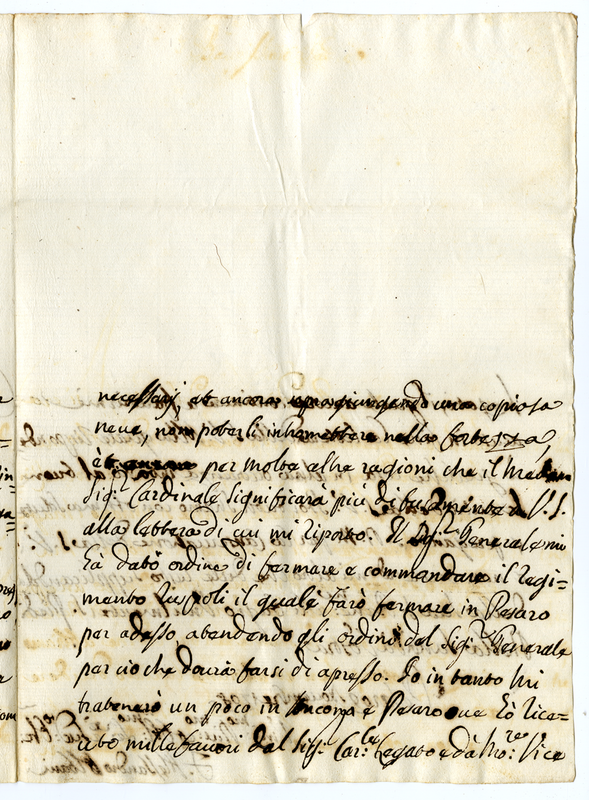 necessarj, et ancora una copiosa
neve, non poterli intromettere nella fortezza,
per molte altre ragioni che il Medmo
Sigr. Cardinale significarà più à V.S.
alla lettera di cui mi riporto. Il Sigr. Generale mi
hà dato ordine di fermare e commandare il Regi=
mento Ruspoli il quale farò fermare in Pesaro
per adesso attendendo gli ordini del Sigr. Generale
per ciò che dovrà farsi di apresso. Io in tanto mi
tratenerò un poco in Ancona e Pesaro ove hò rice=
uto mille favori dal Sigr. Car:le Legato e dà Mo:re Vice